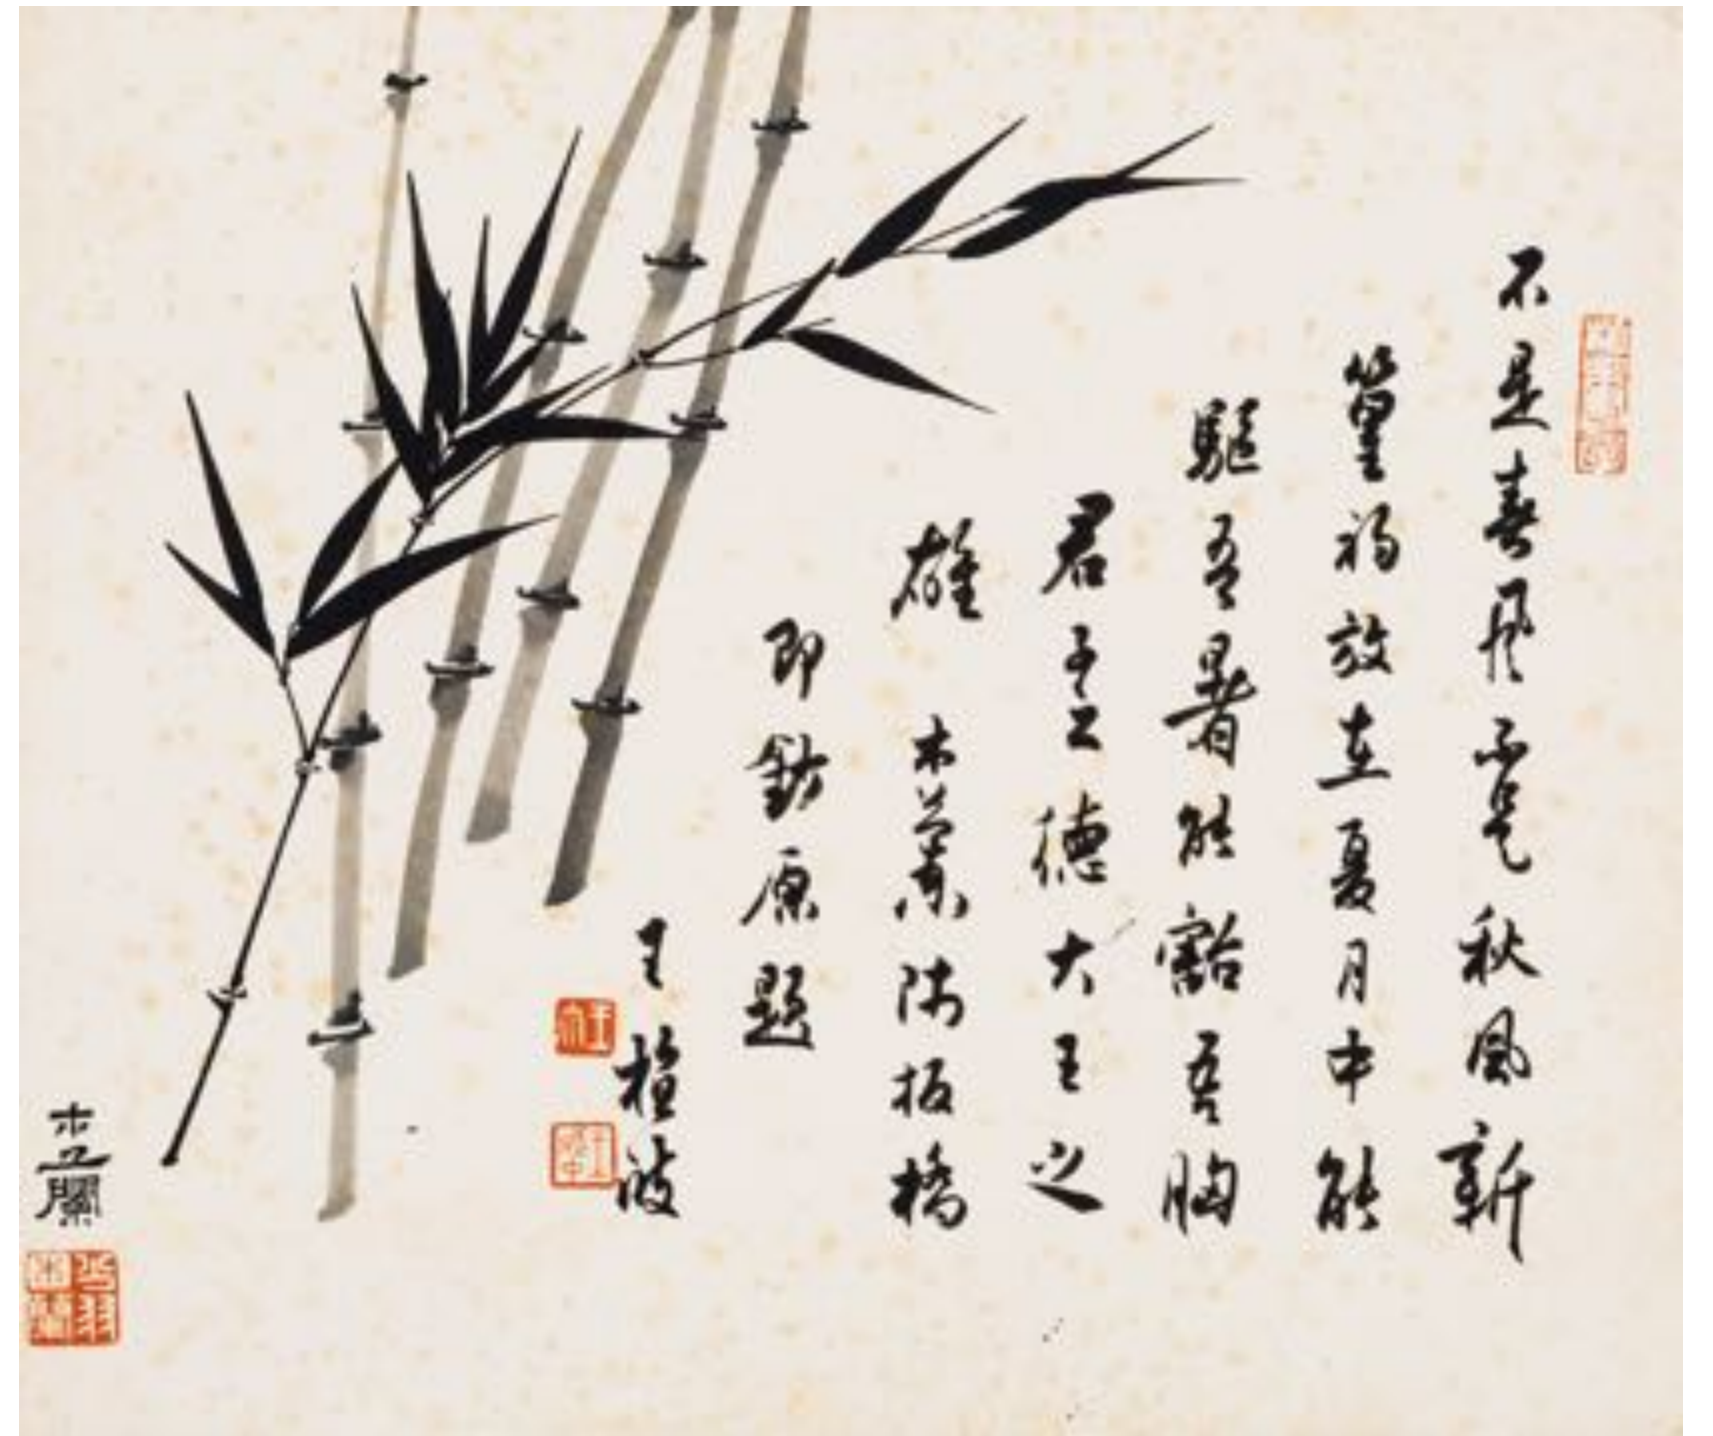 不是春風不是秋風新
篁初放在夏月中能
驅吾暑能豁吾胸
君子之德大王之
雄 木蘭師板橋
即錄原題
王植波
木蘭